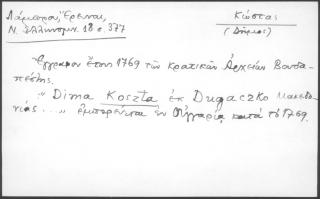 Λάμπρου, Έρευναι,
Ν. Ελληνομν. 18 σ. 377
Κώστας
(Δήμος)
Έγγραφον έτους 1769 των Κρατικών Αρχείων Βουδα-
πέστης.
"Dima Koszta έκ Dugaczko Μακεδο-
νίας...." εμπορεύεται εν Ουγγαρία κατά το 1769.